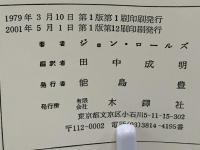 1979年3月10日 第1版第1刷印刷発行
2001年5月1日 第1版第12刷印刷発行
著者 ジョン・ロールズ
編訳者 田中成明
発行者 能島豊
発行所 有限会社 木鐸社
東京都文京区小石川5-11-15-302
〒112-0002 電話(03)3814-4195番